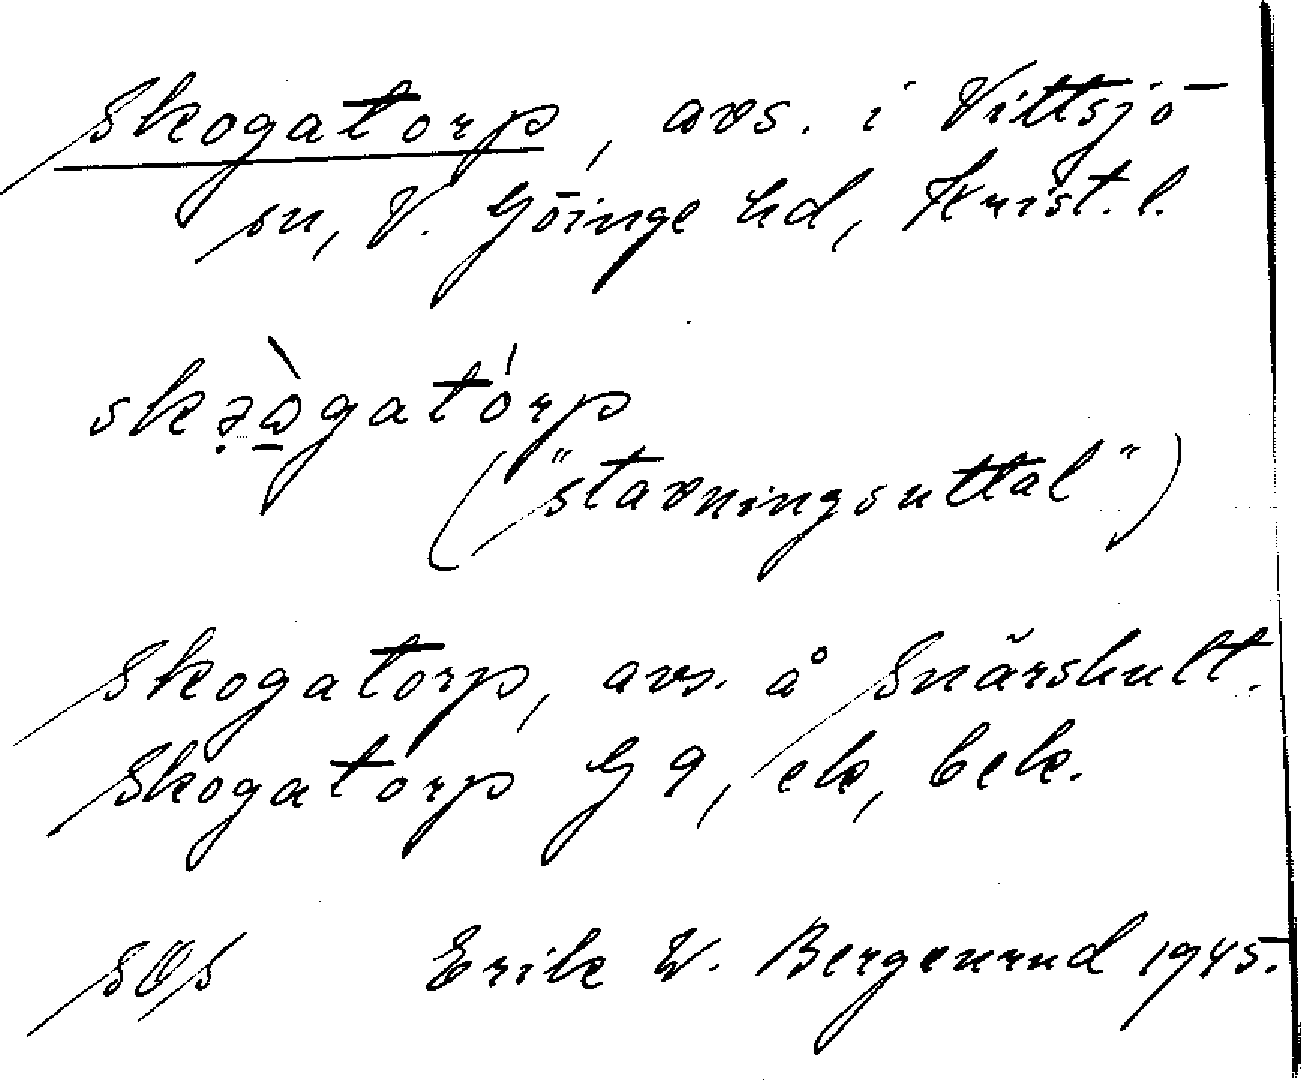 Skogatorp, avs. i Vittsjö
sn, V. Göinge hd, Krist. l.
skə̣ὼ̲gatórp
("stavningsuttal")
Skogatorp, avs. å Snärshult.
Skogatorp G 9, ek, bek.
SOS Erik W. Bergenrud 1945.